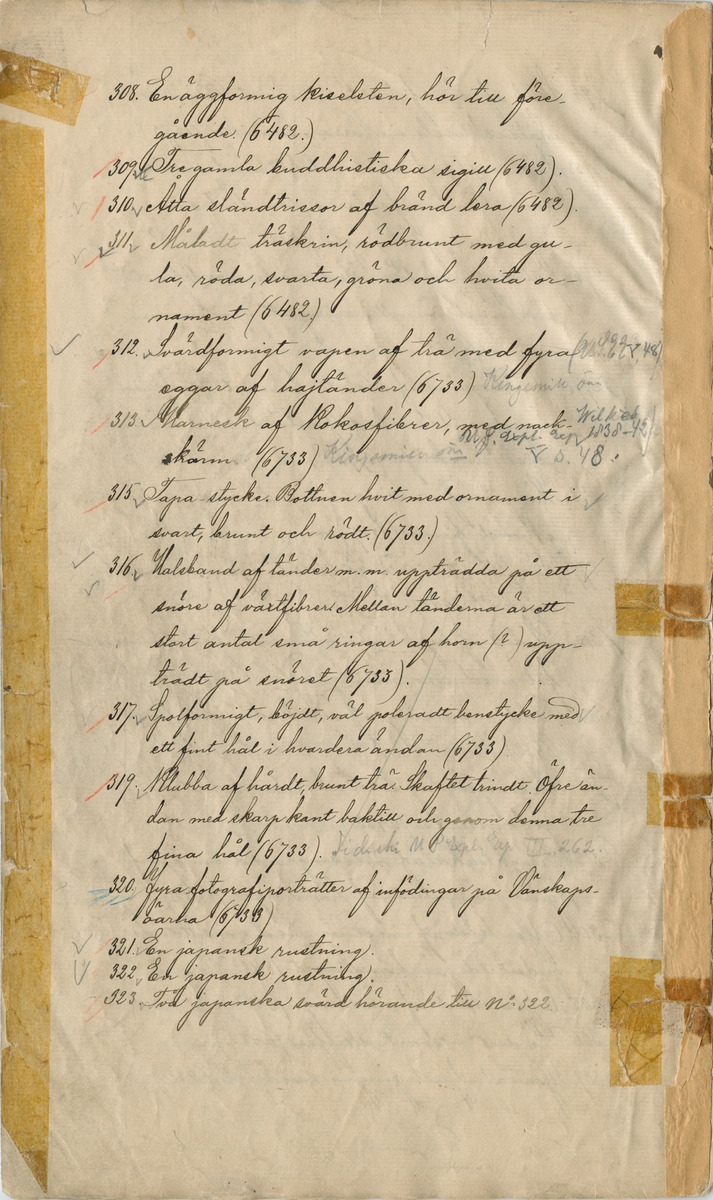 308. En äggformig kiselsten, hör till före-
gående. (6482.)
309. Tre gamla buddhistiska sigill (6482).
310. Åtta sländtrissor af bränd lera (6482).
311. Måladt träskrin, rödbrunt med gu-
la, röda, svarta, gröna och hvita or-
nament (6482.)
312. Svärdformigt vapen af trä med fyra V, 48)
eggar af hajtänder (6733) Kingsmill öar
313. Harnesk af Kokosfibrer, med nack- Wilkes,
skärm (6733) Kingsmill öar U.S. Expl. Exp. 1838-42
V s. 48.
315. Tapa-stycke. Bottnen hvit med ornament i
svart, brunt och rödt. (6733.)
316. Halsband af tänder m.m. uppträdda på ett
snöre af växtfibrer. Mellan tänderna är ett
stort antal små ringar af horn (?) upp-
trädt på snöret (6733).
317. Spolformigt, böjdt, väl poleradt benstycke med
ett fint hål i hvardera ändan (6733)
319. Klubba af hårdt, brunt trä. Skaftet trindt. Öfre än-
dan med skarp kant baktill och genom denna tre
fina hål (6733). U.S. Expl. Exp. III 262.
320. Fyra fotografiporträtter af infödingar på Vänskaps-
öarna (6733)
321. En japansk rustning.
322. En japansk rustning.
323. Två japanska svärd hörande till No. 322.